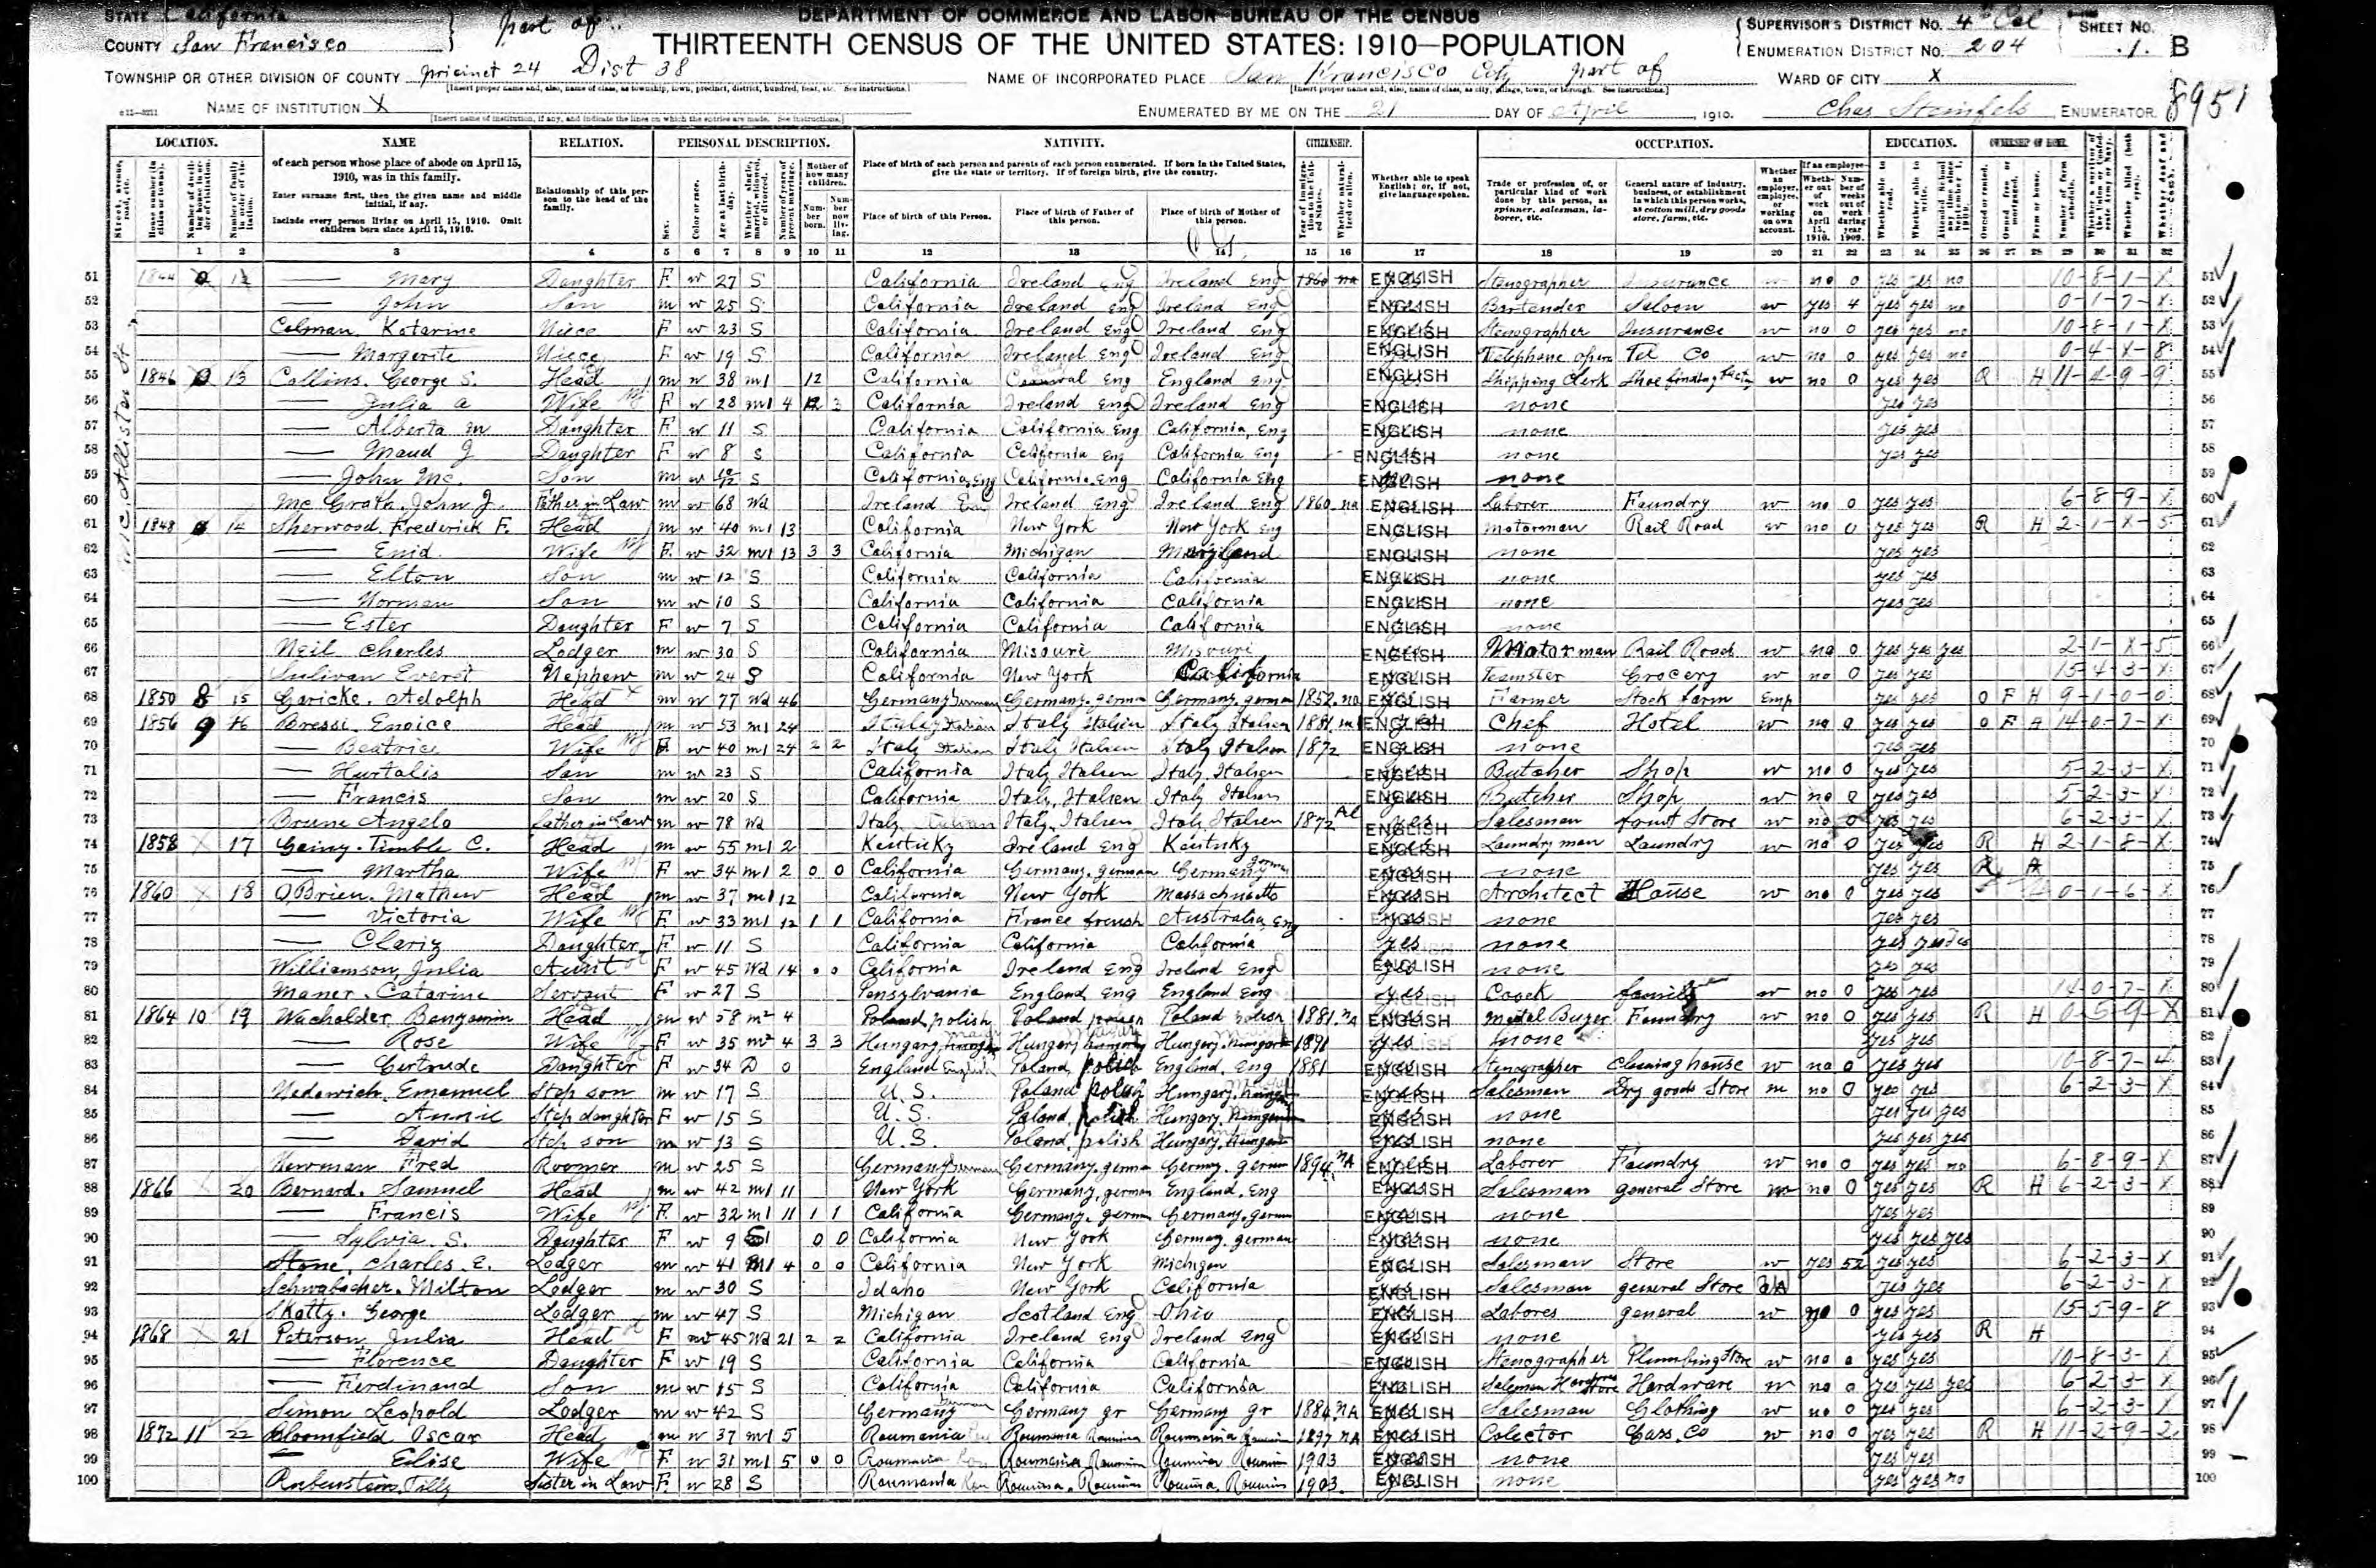 STATE California
COUNTY San Francisco
part of
DEPARTMENT OF COMMERCE AND LABOR-BUREAU OF THE CENSUS
THIRTEENTH CENSUS OF THE UNITED STATES: 1910—POPULATION
SUPERVISOR'S DISTRICT NO. 4th Cal
ENUMERATION DISTRICT NO. 204
SHEET NO. 1 B
TOWNSHIP OR OTHER DIVISION OF COUNTY pricinct 24 Dist 38
NAME OF INCORPORATED PLACE San Francisco City part of
WARD OF CITY X
8951
NAME OF INSTITUTION X
ENUMERATED BY ME ON THE 21 DAY OF April, 1910.
Chas Steinfels, ENUMERATOR.
LOCATION. NAME RELATION. PERSONAL DESCRIPTION. NATIVITY. CITIZENSHIP. OCCUPATION. EDUCATION. OWNERSHIP OF HOME.
of each person whose place of abode on April 15, 1910, was in this family.
Enter surname first, then the given name and middle initial, if any.
Include every person living on April 15, 1910. Omit children born since April 15, 1910.
Relationship of this person to the head of the family.
Place of birth of each person and parents of each person enumerated. If born in the United States, give the state or territory. If of foreign birth, give the country.
Place of birth of this Person. Place of birth of Father of this person. Place of birth of Mother of this person.
Whether able to speak English; or, if not, give language spoken.
Trade or profession of, or particular kind of work done by this person, as spinner, salesman, laborer, etc.
General nature of industry, business, or establishment in which this person works, as cotton mill, dry goods store, farm, etc.
1 2 3 4 5 6 7 8 9 10 11 12 13 14 15 16 17 18 19 20 21 22 23 24 25 26 27 28 29 30 31 32
McAllister St
51 1844 12 — Mary Daughter F w 27 S California Ireland Eng Ireland Eng 1860 na ENGLISH Stenographer Insurance no 0 yes yes no 10-8-1-X
52 — John Son m w 25 S California Ireland Eng Ireland Eng ENGLISH Bartender Saloon w yes 4 yes yes no 0-1-7-X
53 Colman Katarine Niece F w 23 S California Ireland Eng Ireland Eng ENGLISH Stenographer Insurance w no 0 yes yes no 10-8-1-X
54 — Margerite Niece F w 19 S California Ireland Eng Ireland Eng ENGLISH Telephone Tel Co w no 0 yes yes no 0-4-X-8
55 1846 13 Collins. George S. Head m w 38 m1 12 California Eng England Eng ENGLISH Shipping Clerk w no 0 yes yes R H 11-4-9-9
56 — Julia a Wife F w 28 m1 4 3 California Ireland Eng Ireland Eng ENGLISH none yes yes
57 — Alberta m Daughter F w 11 S California California Eng California, Eng ENGLISH none yes yes
58 — Maud J Daughter F w 8 S California California Eng California Eng ENGLISH none yes yes
59 — John Mc. Son m w S California, Eng California, Eng California Eng ENGLISH none
60 Mc Grath, John J. Father in Law m w 68 Wd Ireland Eng Ireland Eng Ireland Eng 1860 na ENGLISH Laborer Foundry w no 0 yes yes 6-8-9-X
61 1848 14 Sherwood, Frederick F. Head m w 40 m1 13 California New York New York Eng ENGLISH motorman Rail Road w no 0 yes yes R H 2-1-X-5
62 — Enid Wife F w 32 m1 13 3 3 California Michigan Maryland ENGLISH none yes yes
63 — Elton Son m w 12 S California California California ENGLISH none yes yes
64 — Norman Son m w 10 S California California California ENGLISH none yes yes
65 — Ester Daughter F w 7 S California California California ENGLISH none
66 Neil Charles Lodger m w 30 S California Misouri Misouri ENGLISH Motorman Rail Road w no 0 yes yes yes 2-1-X-5
67 Sulivan Everet Nephew m w 24 S California New York California ENGLISH Teamster Grocery w no 0 yes yes 15-4-3-X
68 1850 8 15 Garicke. Adolph Head m w 77 Wd 46 Germany German Germany. german Germany. german 1852 na ENGLISH Farmer Stock farm Emp yes yes O F H 9-1-0-0
69 1856 9 16 Bressi. Enoice Head m w 53 m1 24 Italy Italian Italy Italien Italy Italien 1881 ENGLISH Chef Hotel w no 0 yes yes O F H 14-0-7-X
70 — Beatrice Wife F w 40 m1 24 2 2 Italy Italian Italy Italien Italy Italien 1872 ENGLISH none yes yes
71 — Hurtalis Son m w 23 S California Italy Italien Italy. Italien ENGLISH Butcher Shop w no 0 yes yes 5-2-3-X
72 — Francis Son m w 20 S California Italy, Italien Italy Italien ENGLISH Butcher Shop w no 0 yes yes 5-2-3-X
73 Brune Angelo father in Law m w 78 Wd Italy Italian Italy, Italien Italy Italien 1872 Al ENGLISH Salesman Store w no 0 yes yes 6-2-3-X
74 1858 17 Gainy. Timble C. Head m w 55 m1 2 Kentuky Ireland Eng Kentuky ENGLISH Laundry man Laundry w no 0 yes yes R H 2-1-8-X
75 — Martha Wife F w 34 m1 2 0 0 California Germany. german Germany german ENGLISH none yes yes
76 1860 18 OBrien. Mathew Head m w 37 m1 12 California New York Massachusetts ENGLISH Architect House w no 0 yes yes 0-1-6-X
77 — Victoria Wife F w 33 m1 12 1 1 California France french Australia, Eng yes none yes yes
78 — Clariz Daughter F w 11 S California California California yes none yes yes yes
79 Williamson, Julia Aunt F w 45 Wd 14 0 0 California Ireland Eng Ireland Eng ENGLISH none yes yes
80 Maner. Catarine Servant F w 27 S Pensylvania England Eng England Eng yes Coock w no 0 yes yes 14-0-7-X
81 1864 10 19 Wacholder, Bengamin Head m w 58 m2 4 Poland polish Poland polish Poland polish 1881 NA ENGLISH Metal Buyer Foundry w no 0 yes yes R H 0-5-9-X
82 — Rose Wife F w 35 m2 4 3 3 Hungary Hungary Hungary 1891 yes none yes yes
83 — Gertrude Daughter F w 34 D 0 England English Poland, polish England, Eng 1881 ENGLISH Stenographer Clearing house w no 0 yes yes 10-8-7-4
84 Nedowich, Emanuel Step son m w 17 S U. S. Poland polish Hungary ENGLISH Salesman Dry goods Store no 0 yes yes 6-2-3-X
85 — Annie Step daughter F w 15 S U. S. Poland, polish Hungary ENGLISH none yes yes yes
86 — David Step son m w 13 S U. S. Poland, polish Hungary ENGLISH none yes yes yes
87 Newman Fred Roomer m w 25 S Germany German Germany, german 1894 NA ENGLISH Laborer Foundry w no 0 yes yes no 6-8-9-X
88 1866 20 Bernard. Samuel Head m w 42 m1 11 New York Germany, german England. Eng ENGLISH Salesman general Store no 0 yes yes R H 6-2-3-X
89 — Francis Wife F w 32 m1 11 1 1 California Germany. german Germany. german ENGLISH none yes yes
90 — Sylvia. S. Daughter F w 9 0 0 California New York Germany. german ENGLISH none yes yes yes
91 Stone, Charles E. Lodger m w 41 m1 4 0 0 California New York Michigan ENGLISH Salesman Store w yes 52 yes yes 6-2-3-X
92 Schwabacher. Milton Lodger m w 30 S Idaho New York California ENGLISH Salesman general Store yes yes 6-2-3-X
93 Skatty. George Lodger m w 47 S Michigan Scotland Eng Ohio ENGLISH Labores general w no 0 yes yes 15-5-9-8
94 1868 21 Peterson Julia Head F w 45 Wd 21 2 2 California Ireland Eng Ireland Eng ENGLISH none yes yes R H
95 — Florence Daughter F w 19 S California California California ENGLISH Stenographer Plumbing Store w no 0 yes yes 10-8-3-X
96 — Ferdinand Son m w 15 S California California California ENGLISH Salesman Hardware Store Hardware no 0 yes yes yes 6-2-3-X
97 Simon Leopold Lodger m w 42 S Germany German Germany gr Germany gr 1884 NA ENGLISH Salesman Clothing w no 0 yes yes 6-2-3-X
98 1872 11 22 Bloomfield Oscar Head m w 37 m1 5 Roumania Roumania Roumania 1897 NA ENGLISH Colector Gass. Co w no 0 yes yes R H 11-2-9-2
99 — Elise Wife F w 31 m1 5 0 0 Roumania Roumania 1903 ENGLISH none yes yes
100 Rubenstein, Tilly Sister in Law F w 28 S Roumania 1903 ENGLISH none yes yes no